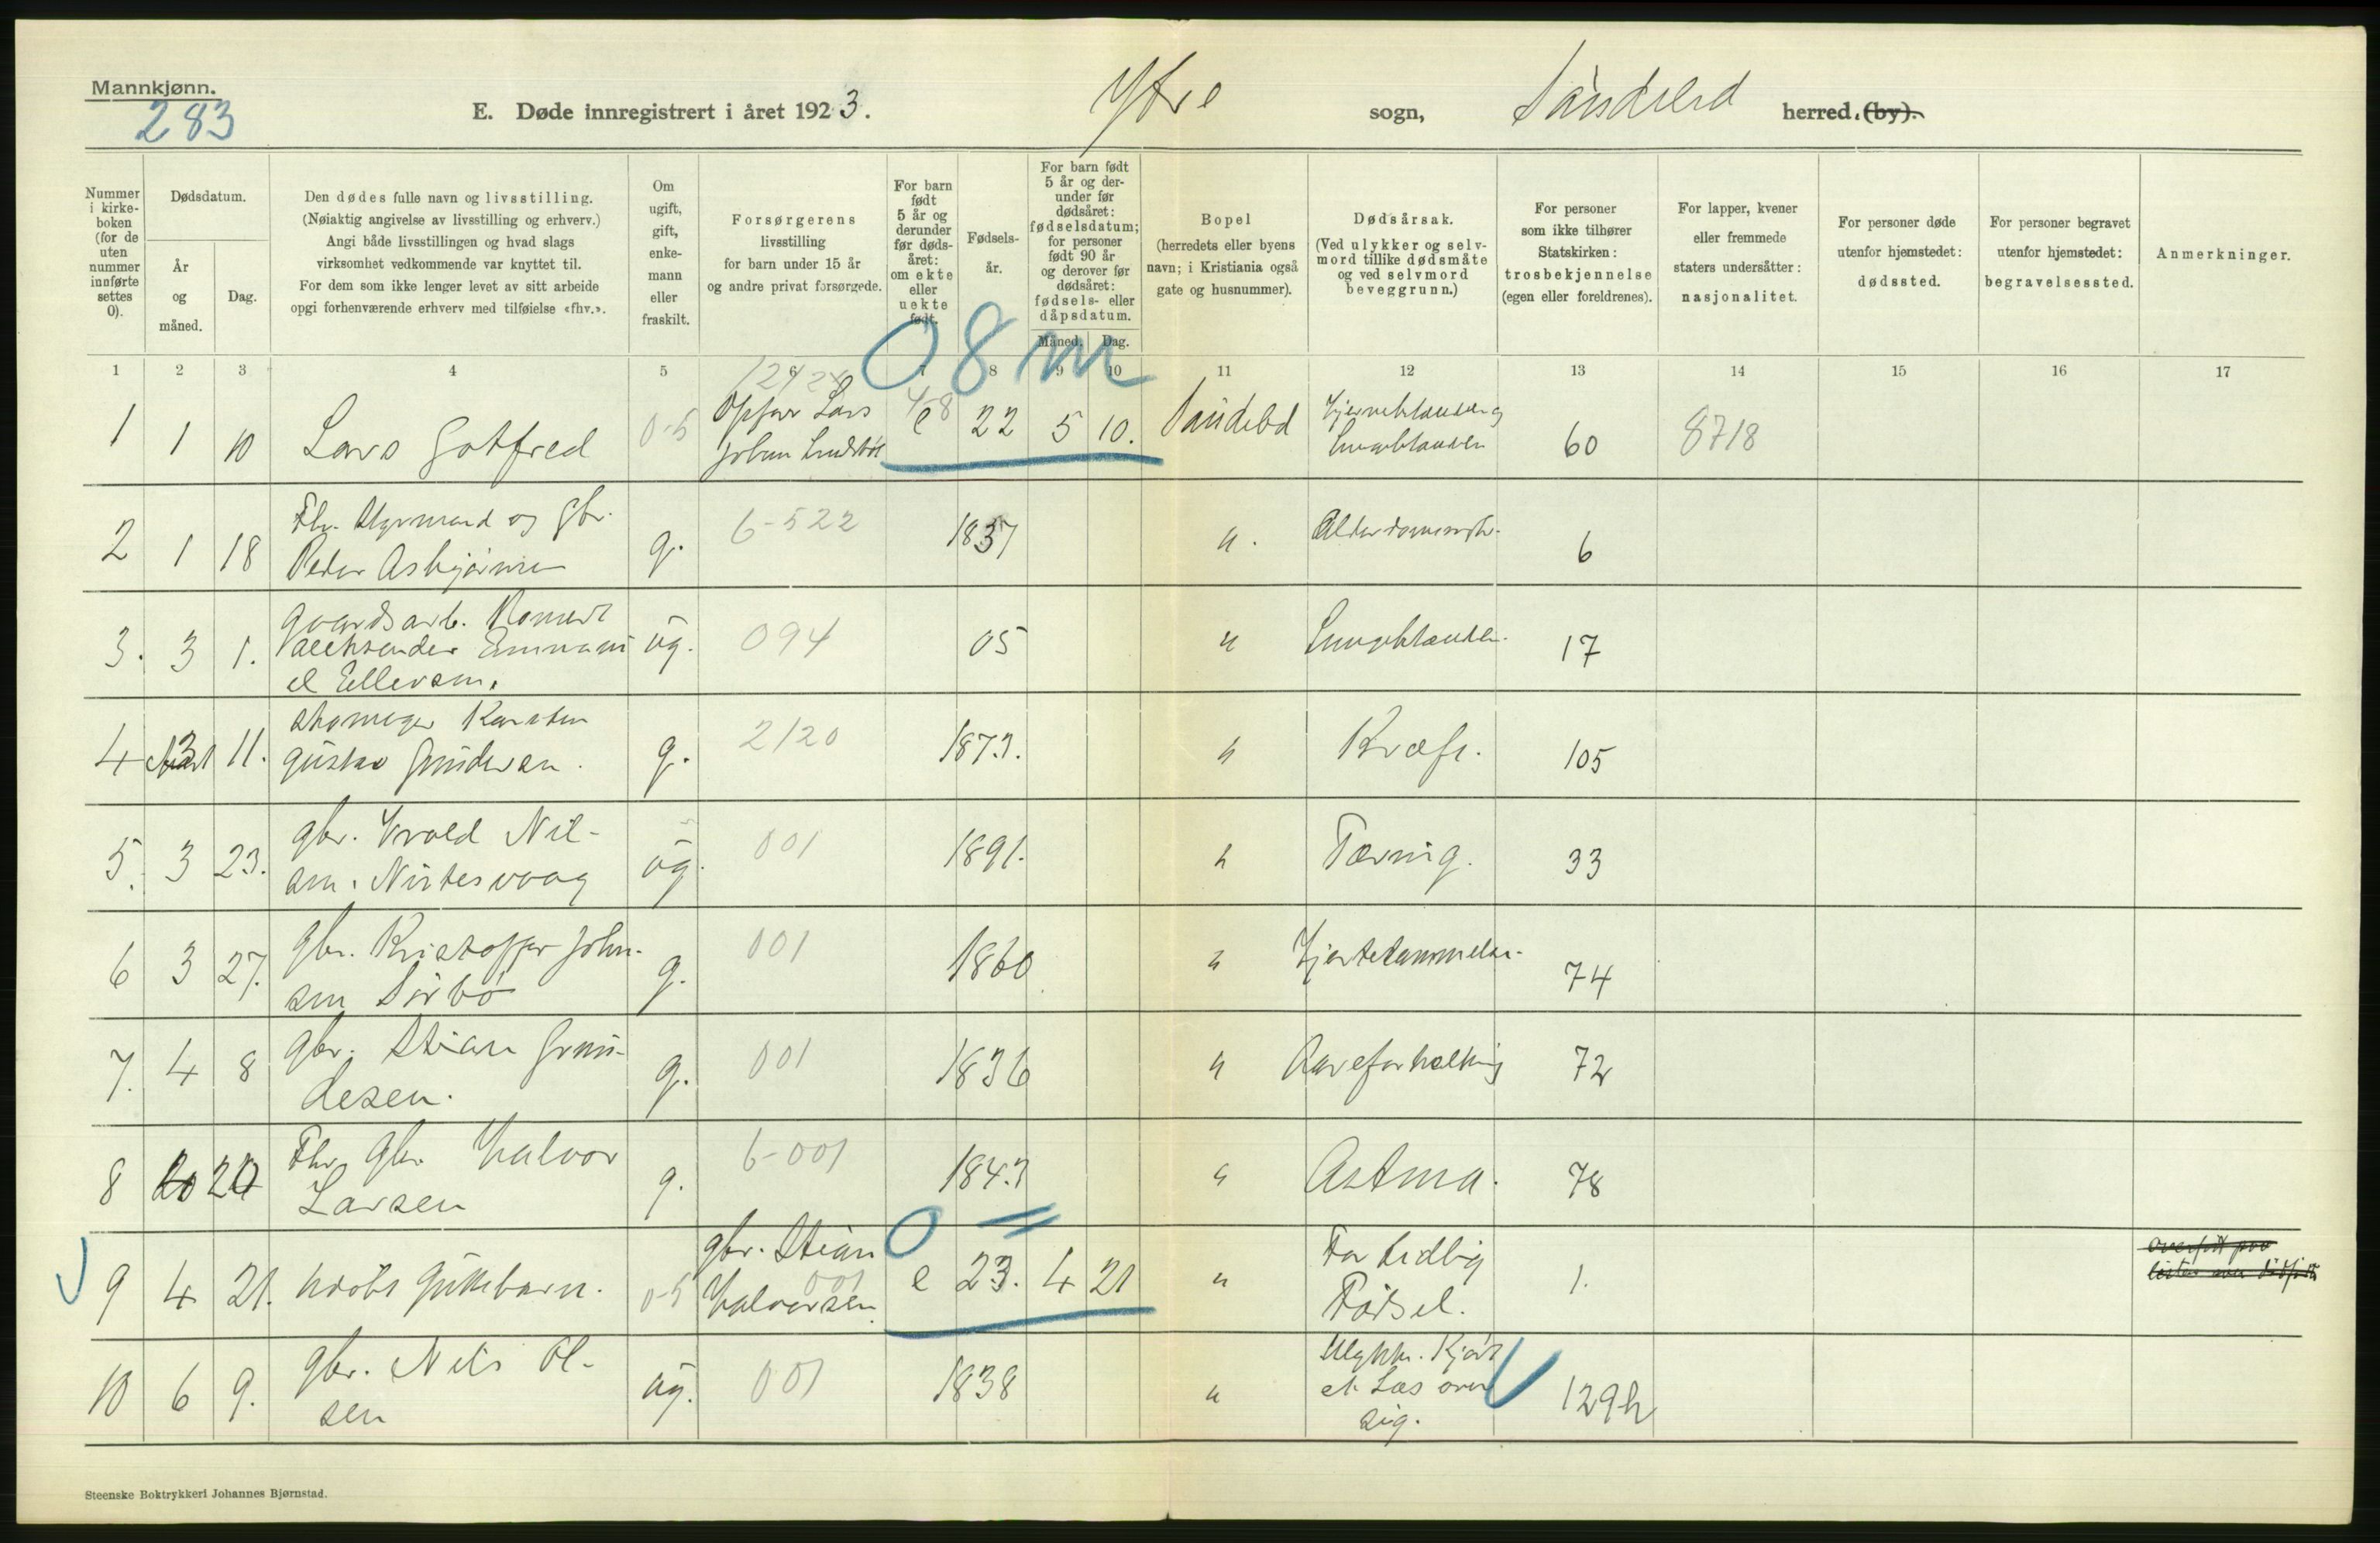 Mannkjønn.
283
E. Døde innregistrert i året 1923.
Ytre sogn, Sandeherred herred. (by).
Nummer i kirke- boken (for de uten nummer innførte settes 0).
Dødsdatum.
År og måned.
Dag.
Den dødes fulle navn og livsstilling.
(Nøiaktig angivelse av livsstilling og erhverv.)
Angi både livsstillingen og hvad slags
virksomhet vedkommende var knyttet til.
For dem som ikke lenger levet av sitt arbeide
opgi forhenværende erhverv med tilføielse «fhv.».
Om ugift, gift, enke- mann eller fraskilt.
Forsørgerens
livsstilling
for barn under 15 år
og andre privat forsørgede.
For barn født 5 år og derunder før døds- året: om ekte eller uekte født.
Fødsels- år.
For barn født 5 år og der- under før dødsåret: fødselsdatum; for personer født 90 år og derover før dødsåret: fødsels- eller dåpsdatum.
Måned. Dag.
Bopel
(herredets eller byens
navn; i Kristiania også
gate og husnummer).
Dødsårsak.
(Ved ulykker og selv-
mord tillike dødsmåte
og ved selvmord
beveggrunn.)
For personer
som ikke tilhører
Statskirken:
trosbekjennelse
(egen eller foreldrenes).
For lapper, kvener
eller fremmede
staters undersåtter:
nasjonalitet.
For personer døde
utenfor hjemstedet:
dødssted.
For personer begravet
utenfor hjemstedet:
begravelsessted.
Anmerkninger.
08 m
1 2 3 4 5 6 7 8 9 10 11 12 13 14 15 16 17
1 1 10 Lars Gotfred 0-5 Lars Johan e 22 5 10. 60 8718
2 1 18 Fhv. Styrmand og gbr.
Peder Asbjørnsen g. 6-522 1837 " . 6
3. 3 1. Gaardsarb.
Ellevsen. ug. 094 05 " 17
4 3 11. Karsten
Gustav Gundersen. g. 2120 1873. " Kræft. 105
5. 3 23. gbr. Nil-
sen. ug. 001 1891. " Tæring. 33
6 3 27. gbr. Kristoffer John-
sen Sørbø g. 001 1860 " Hjertelammelse. 74
7. 4 8 gbr. Stian Grun-
desen. g. 001 1836 " Aareforkalkning 72
8 20 Fhv. gbr. Halvor
Larsen g. 6-001 1843 " Astma. 78
9 4 21. Guttebarn. 0-5 gbr. Stian
Halvorsen 001 e 23. 4 21 " For tidlig
Fødsel. 1.
10 6 9. gbr. Nils Ol-
sen ug. 001 1838 " Ulykke. Kjørt
et Læs over
sig. 129h
Steenske Boktrykkeri Johannes Bjørnstad.